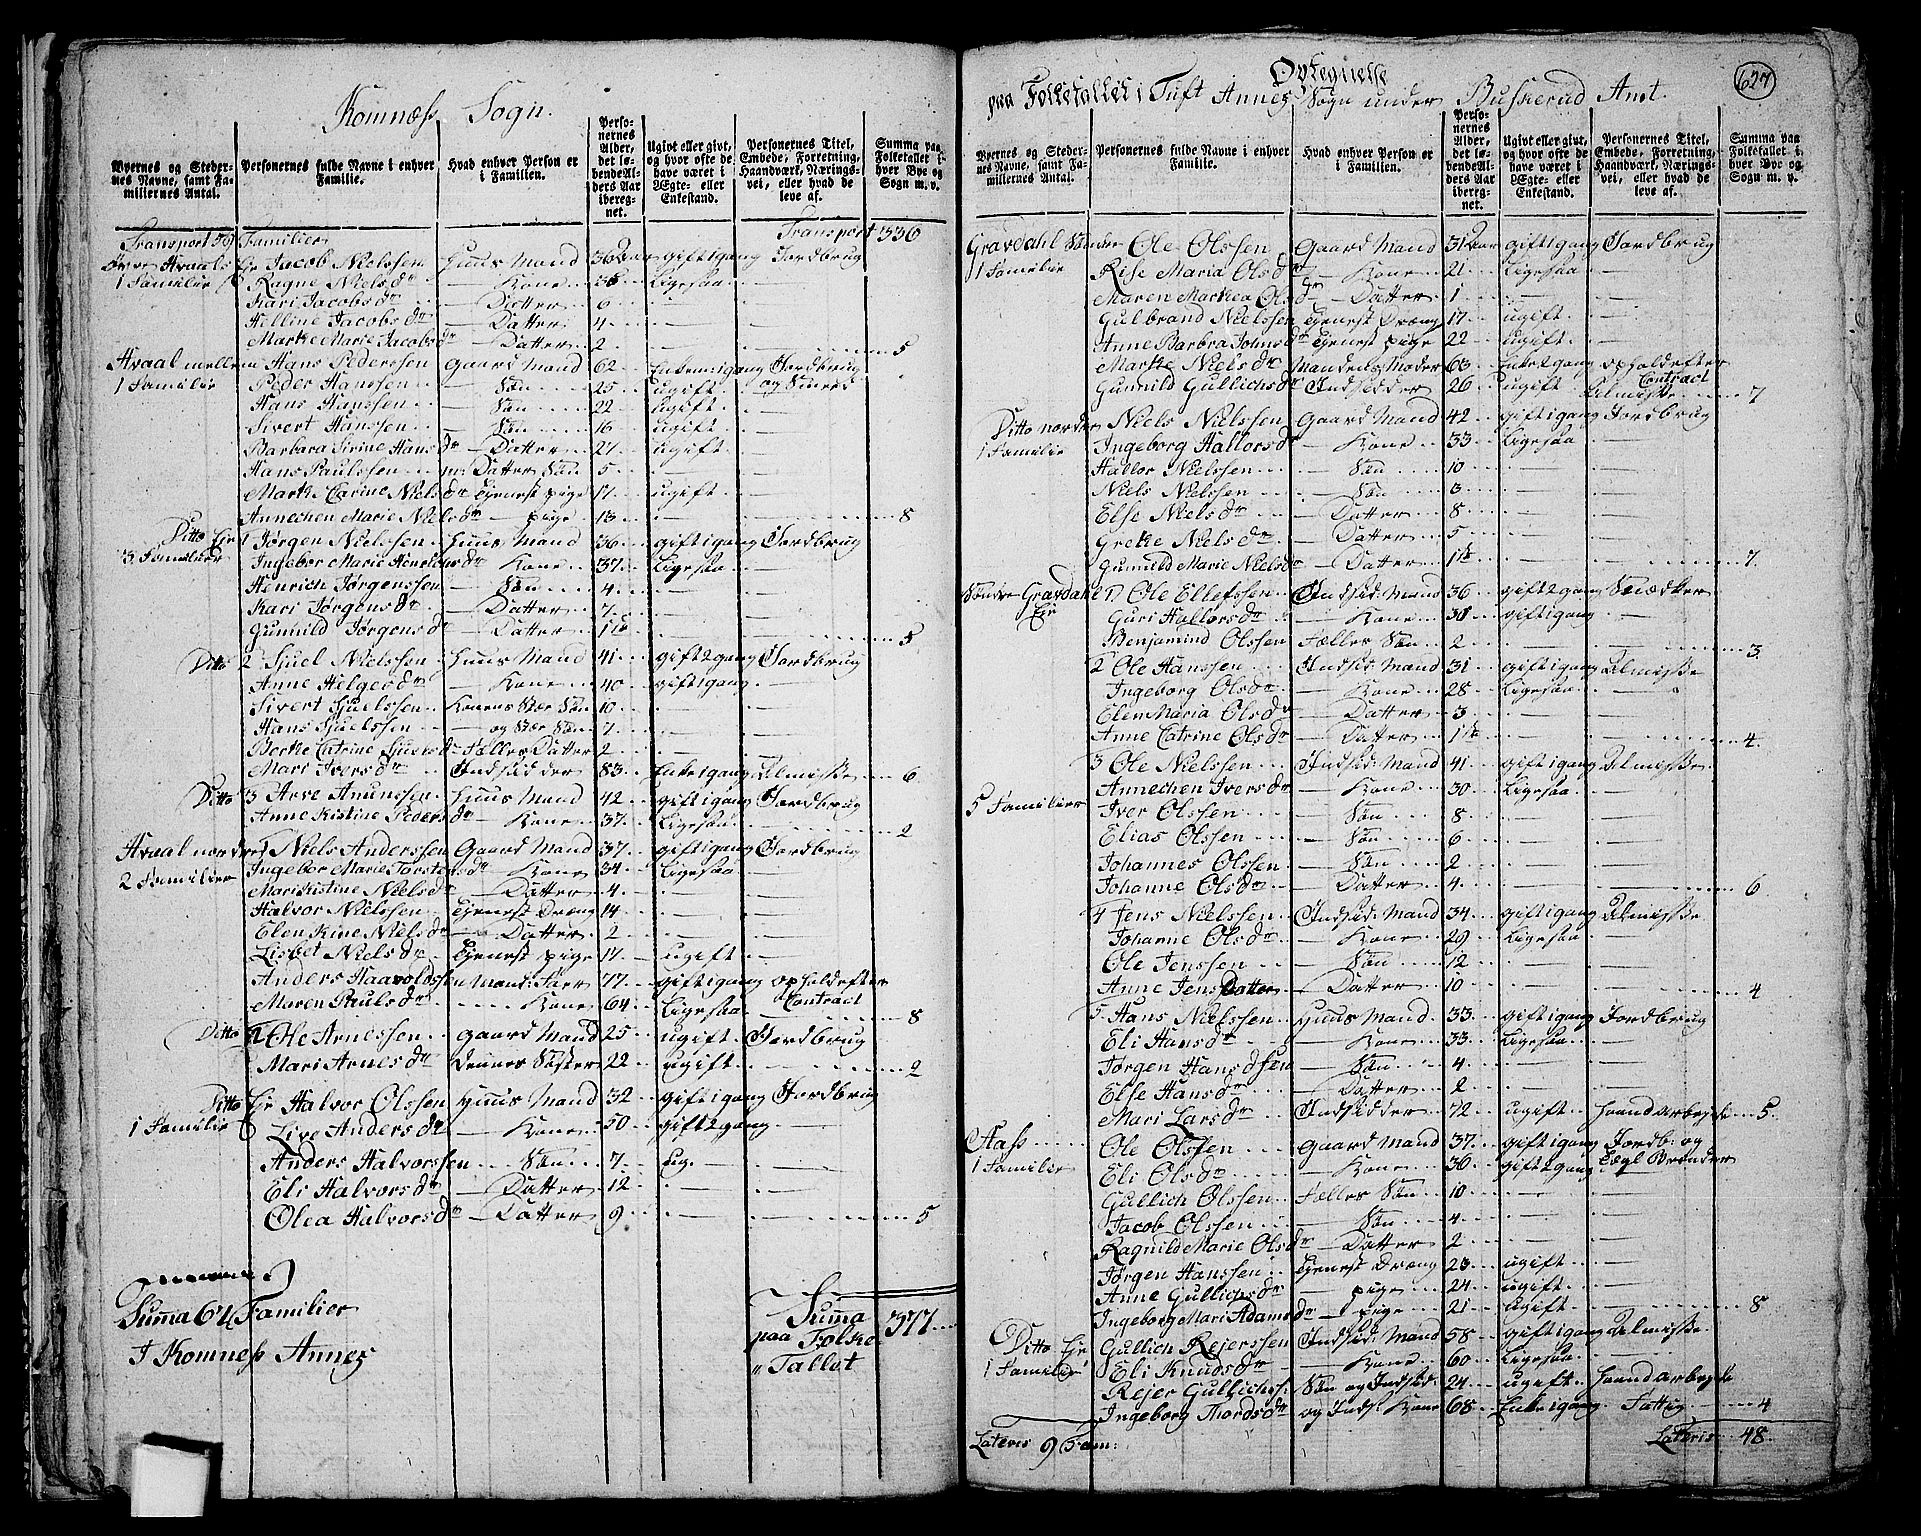 Komnæs Sogn.
Byernes og Stedernes Navne, samt Familiernes Antal.
Personernes fulde Navne i enhver Familie.
Hvad enhver Person er i Familien.
Personernes Alder, det løbende Alders Aar iberegnet.
Ugivt eller givt, og hvor ofte de have været i Ægte- eller Enkestand.
Personernes Titel, Embede, Forretning, Haandværk, Næringsvei, eller hvad de leve af.
Summa paa Folketallet i hver Bye og Sogn m. v.
Transport 59 Familier Transport 336
Øvre Hvaals Eje Jacob Nielssen Huus Mand 36 Aar gift 1 gang Jordbrug
1 Familie Ragne Nielsdr — Kone Ligesaa
Kari Jacobsdr — Datter 6
Helline Jacobsdr — Datter 4
Marte Marie Jacobsdr — Datter 2 5
Hvaal mellem Hans Pederssen Gaard Mand 62 Enkem 1 gang Jordbrug
1 Familie Peder Hanssen — Søn 25 ugift
Hans Hanssen — Søn 22 ugift
Sivert Hanssen — Søn 16 ugift
Barbara Sirine Hansdr — Datter 27 ugift
Hans Paulssen Datter Søn 5
Marte Carine Nielsdr Tjenest pige 17 ugift
Annechen Marie Nielsdr — pige 13 8
Ditto Eje 1 Jørgen Nielssen Huus Mand 36 gift 1 gang Jordbrug
3 Familier Ingebor Marie Henrichsdr Kone 37 Ligesaa
Hinrich Jørgenssen — Søn 4
Kari Jørgensdr — Datter 7
Gunnild Jørgensdr — Datter 1 5
Ditto 2 Sjuel Nielssen Huus Mand 41 gift 2 gang Jordbrug
Anne Helgesdr — Kone 40 gift 1 gang
Sivert Sjuelssen Konens Stær Søn 10
Hans Sjuelssen — og Stær Søn 7
Berte Catrine Sjuelsdr Fæller Datter 2
Mari Iversdr Indsidder 83 Enke 1 gang Almisse 6
Ditto 3 Arve Amunssen Huus Mand 42 gift 1 gang Jordbrug
Anne Kistine Pedersdr — Kone 37 Ligesaa 2
Hvaal nordre 1 Niels Anderssen Gaard Mand 37 gift 1 gang Jordbrug
2 Familier Ingebor Marie Torstensdr Kone 34 Ligesaa
Mari Kistine Nielsdr — Datter 4
Halvor Nielssen Tjenest Dræng 14
Elen Kine Nielsdr — Datter 2
Lisbet Nielsdr Tjenest pige 17 ugift
Anders Haavoldssen Mand: Faer 77 gift 1 gang ophold efter
Maren Paulsdr Kone 64 Ligesaa Contract 8
Ditto 2 Ole Arnessen gaard Mand 25 ugift Jordbrug
Mari Arnesdr Dennes Søster 22 ugift 2
Ditto Eje Halvor Olssen Huus Mand 32 gift 1 gang Jordbrug
1 Familie Live Andersdr — Kone 50 gift 2 gang
Anders Halvorssen Søn 7 ug.
Eli Halvorsdr — Datter 12
Olea Halvorsdr — Datter 9 5
Summa 64 Familier Summa paa Folke Tallet 377
I Komness Annex
Optegnelse 627
paa Folketallet i Tuft Annex Sogn under Buskerud Amt.
Byernes og Stedernes Navne, samt Familiernes Antal.
Personernes fulde Navne i enhver Familie.
Hvad enhver Person er i Familien.
Personernes Alder, det løbende Alders Aar iberegnet.
Ugivt eller givt, og hvor ofte de have været i Ægte- eller Enkestand.
Personernes Titel, Embede, Forretning, Haandværk, Næringsvei, eller hvad de leve af.
Summa paa Folketallet i hver Bye og Sogn m. v.
Gravdahl Søndre Ole Olssen Gaard Mand 31 Aar gift 1 gang Jordbrug
1 Familie Rise Maria Olsdr — Kone 21 Ligesaa
Maren Marthea Olsdr — Datter 1
Gulbrand Nielssen Tjenest Dræng 17 ugift
Anne Barbra Johnsdr Tjenest pige 22 ugift
Marte Nielsdr Mandens Moder 63 Enke 1 gang ophold efter Contract
Gunnild Gullichsdr Indsidder 26 ugift Almisse 7
Ditto nordre Niels Nielssen Gaard Mand 42 gift 1 gang Jordbrug
1 Familie Ingeborg Hallorsdr — Kone 33 Ligesaa
Hallor Nielssen — Søn 10
Niels Nielssen — Søn 3
Else Nielsdr — Datter 8
Grete Nielsdr — Datter 5
Gunnild Marie Nielsdr — Datter 1 7
Søndre Gravdahl Eje 1 Ole Ellefssen Indsid Mand 36 gift 2 gang Snedker
Guri Hallorsdr — Kone 38 gift 1 gang
Benjamind Olssen Fæller Søn 2 3
2 Ole Hanssen Indsid Mand 31 gift 1 gang Almisse
Ingeborg Olsdr — Kone 28 Ligesaa
Elen Maria Olsdr — Datter 3
Anne Catrine Olsdr — Datter 1 4
3 Ole Nielssen Indsid Mand 41 gift 1 gang Almisse
Annechen Iversdr — Kone 30 Ligesaa
5 Familier Iver Olssen — Søn 8
Elias Olssen — Søn 6
Johannes Olssen — Søn 2
Johanne Olsdr — Datter 4 6
4 Jens Nielssen Indsid: Mand 34 gift 1 gang Almisse
Johanne Olsdr — Kone 29 Ligesaa
Ole Jenssen — Søn 12
Anne Jens Datter Datter 10 4
5 Hans Nielssen Huus Mand 33 gift 1 gang Jordbrug
Eli Hansdr — Kone 33 Ligesaa
Jørgen Hanssen — Søn 4
Else Hansdr — Datter 2
Mari Larsdr Indsidder 72 ugift Haandarbejde 5
Aass Ole Olssen Gaard Mand 37 gift 1 gang Jordb: og
1 Familie Eli Olsdr — Kone 36 gift 2 gang Tegl Brænder
Gullich Olssen Fæller Søn 10
Jacob Olssen — Søn 4
Ragnild Marie Olsdr — Datter 2
Jørgen Hanssen Tjenest Dræng 23 ugift
Anne Gullichsdr — pige 24 ugift
Ingeborg Mari Adamsdr — pige 21 ugift 8
Ditto Eje Gullich Rejerssen Indsid: Mand 58 gift 1 gang Almisse
1 Familie Eli Knudsdr — Kone 60 Ligesaa
Rejer Gullichs: Søn og Indsid: 24 ugift Haandarbejde
Ingeborg Thordsdr og Inds: Kone 68 Enke 1 gang Fattig 4
Lateris 9 Fam: Lateris 48